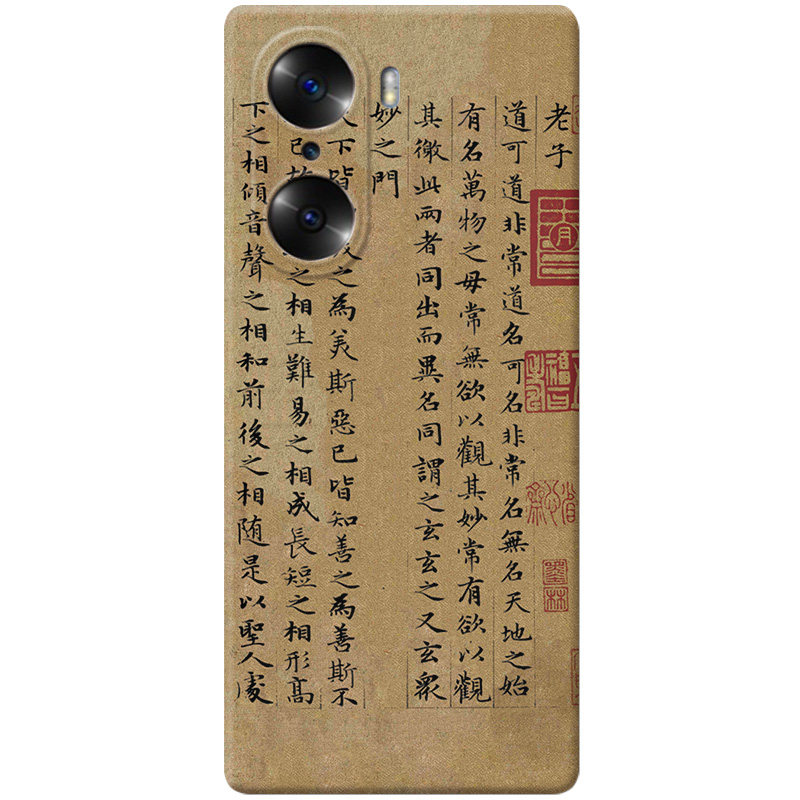 老子
道可道非常道名可名非常名無名天地之始
有名萬物之母常無欲以觀其妙常有欲以觀
其徼此兩者同出而異名同謂之玄玄之又玄衆
妙之門
下皆之為美斯惡已皆知善之為善斯不
已之相生難易之相成長短之相形高
下之相傾音聲之相和前後之相随是以聖人處
墨林